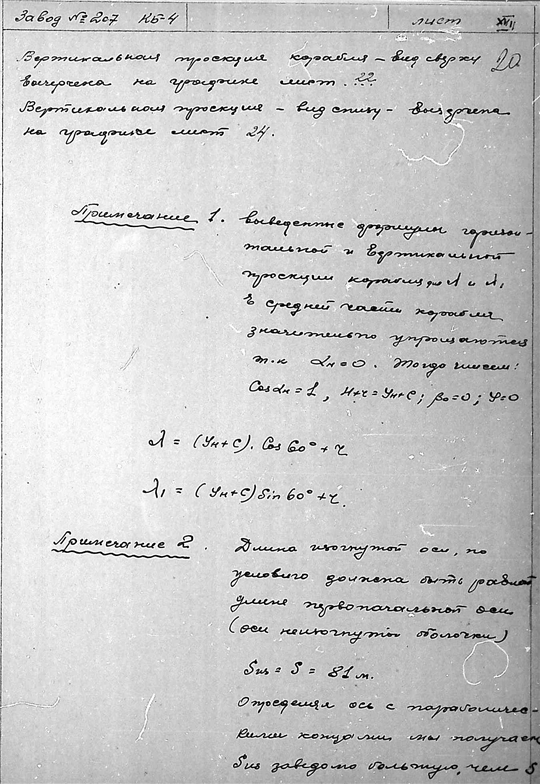 Завод № 207 КБ-4 лист XVII
20
Вертикальная проекция корабля – вид сверху
вычерчена на графике лист 22
Вертикальная проекция – вид снизу – вычерчена
на графике лист 24.
Примечание 1. Выведенные формулы горизон-
тальной и вертикальной
проекции корабля для λ и λ₁
в средней части корабля
значительно упрощаются
т.к αн=0. Тогда имеем:
Cos αн = 1, H+r = Yн+C; β₀=0; φ=0
λ = (Yн+C). Cos 60° + r
λ₁ = (Yн+C) Sin 60° + r.
Примечание 2. Длина изогнутой оси, по
условию должна быть равной
длине первоначальной оси
(оси неизогнутой оболочки)
Sиз = S = 81 м.
Определяя ось с параболичес-
кими концами мы получаем
Sиз заведомо большую, чем S